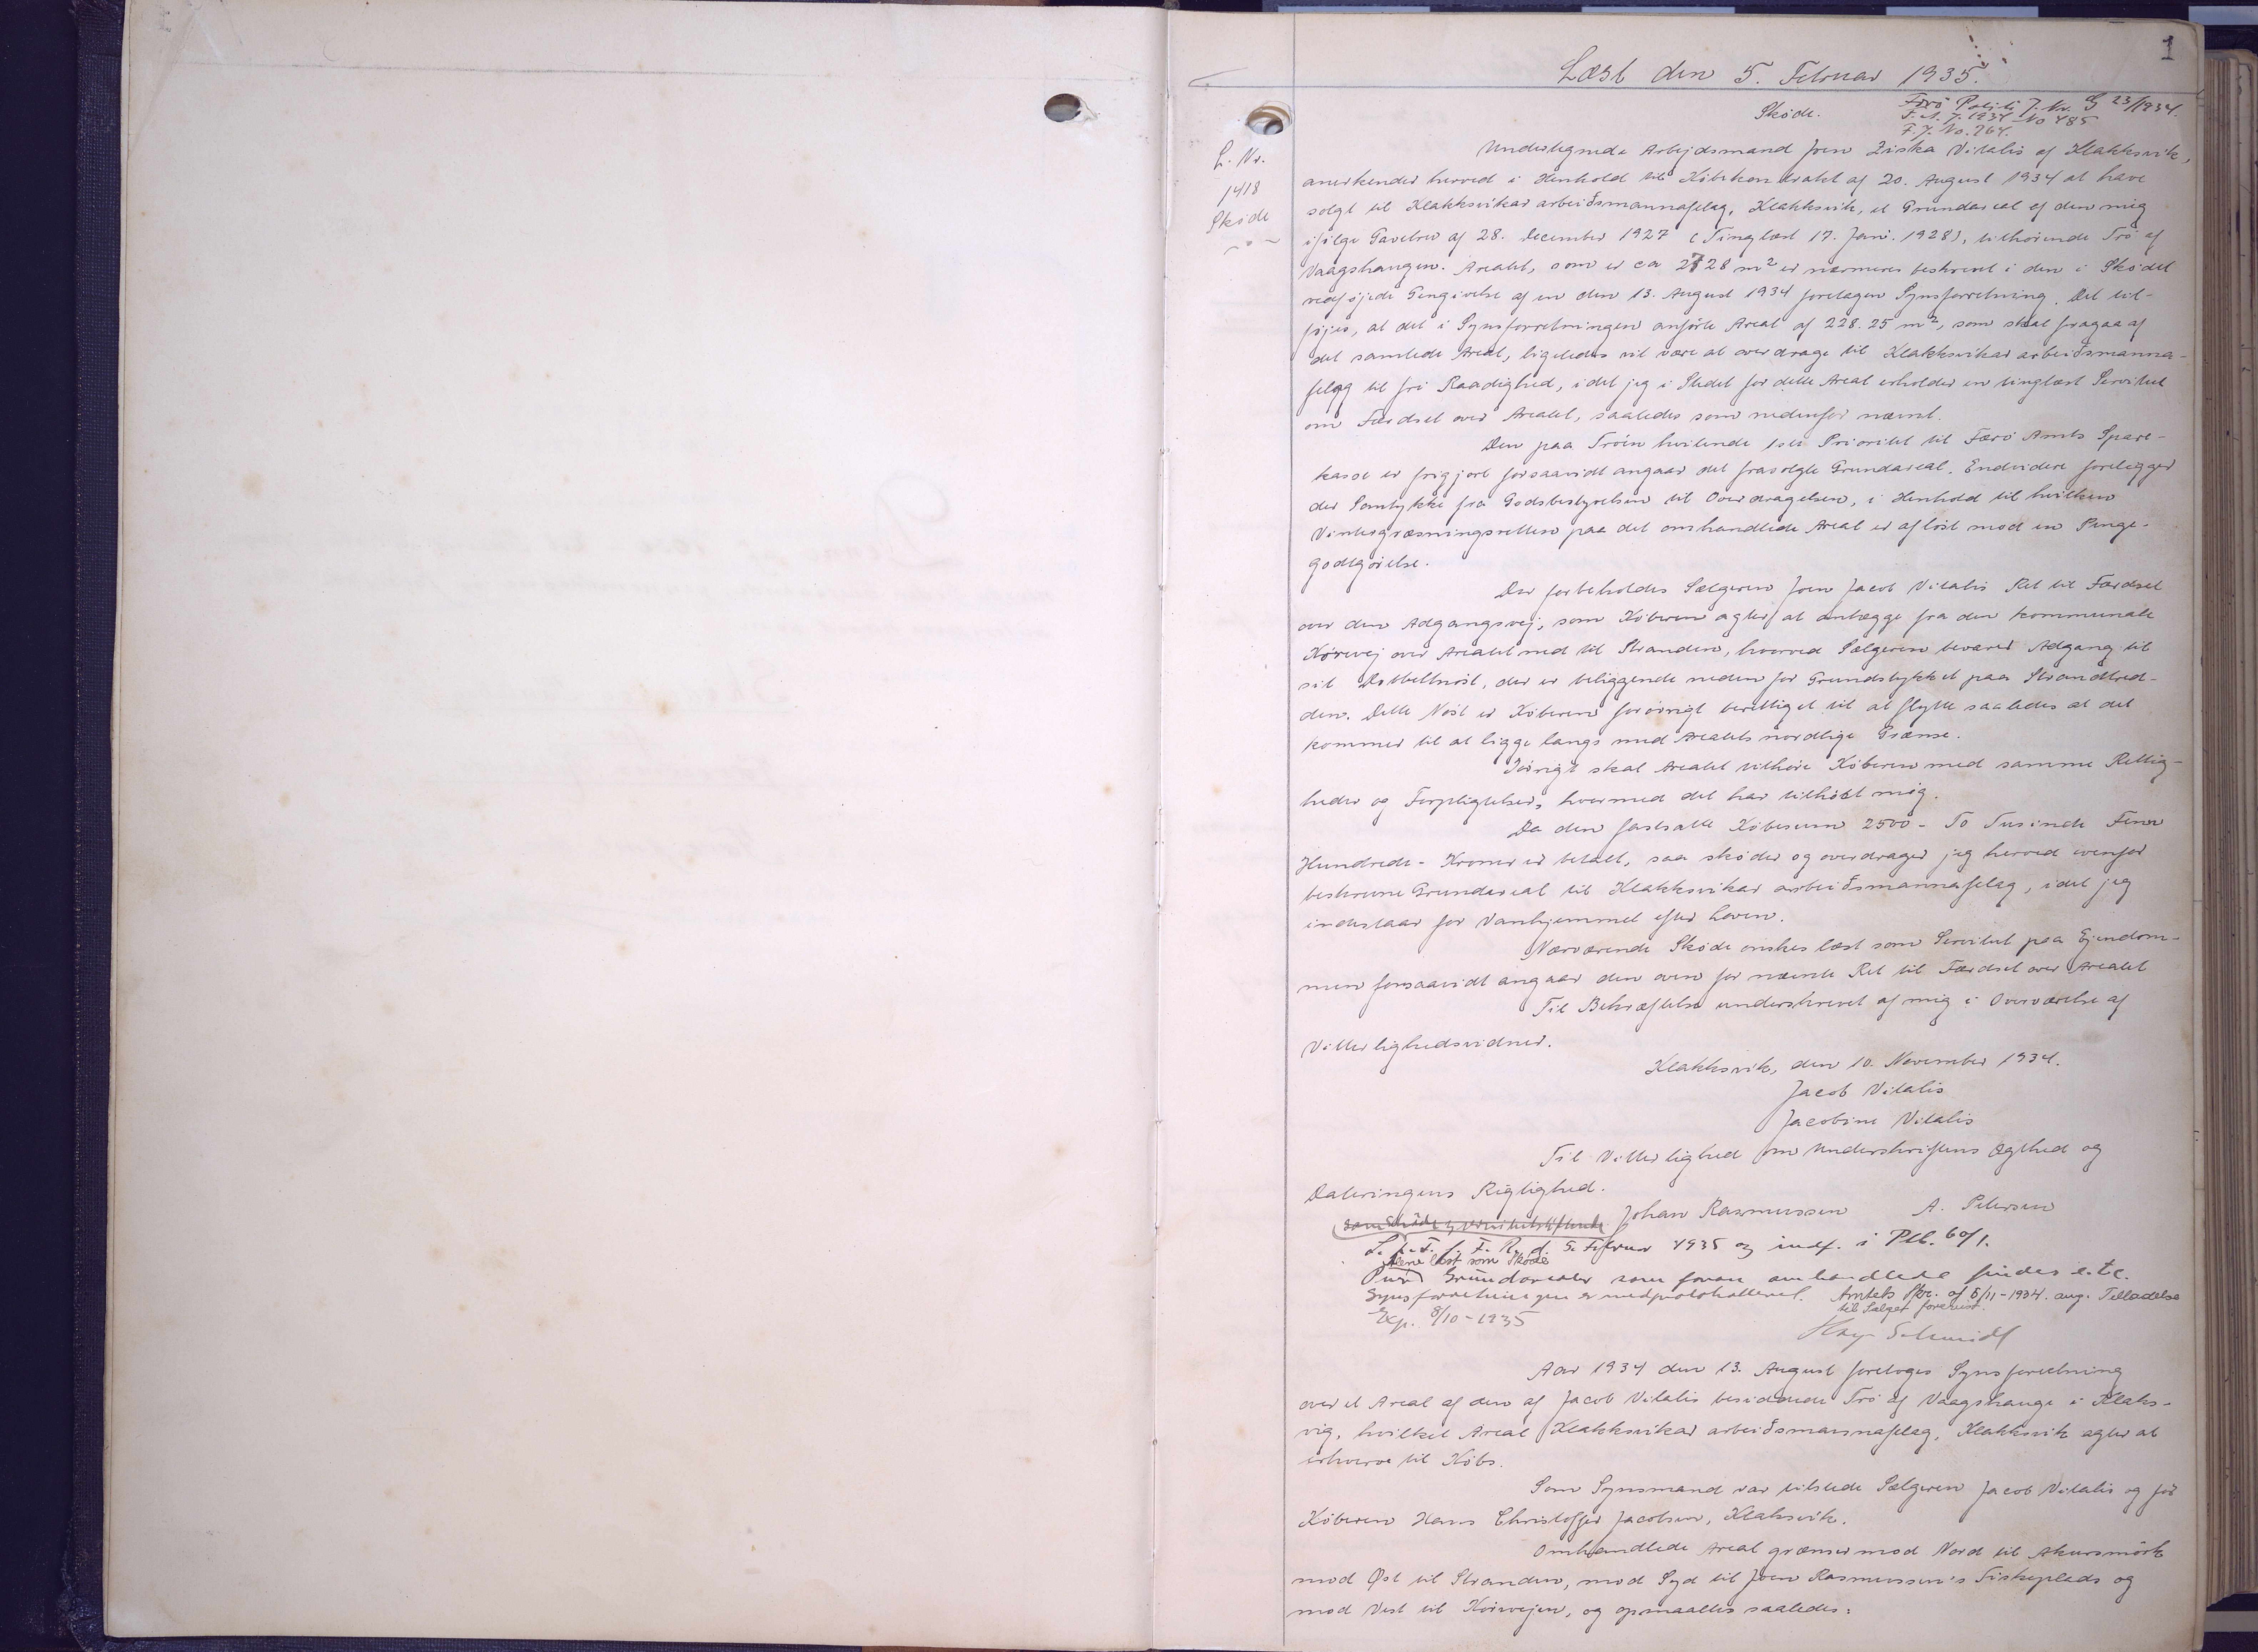 1
Læst den 5. Februar 1935.
Skøde.
Færø Politi J. Nr. G 23/1934.
F. A. J. 1934 No 485
F. J. No. 264.
L. Nr.
1418
Skøde
Undertegnede Arbejdsmand Joen Ziska Vitalis af Klakksvik,
anerkender herved i Henhold til Købekontrakt af 20. August 1934 at have
solgt til Klakksvikar arbeiðsmannafelag, Klakksvik, et Grundareal af den mig
ifølge Gavebrev af 28. December 1927 (Tinglæst 17. Jani. 1928), tilhørende Trø af
Vaagshaugen. Arealet, som er ca 2728 m² er nærmere beskrevet i den i Skødet
vedføjede Gengivelse af en den 13. August 1934 foretagen Synsforretning. Det til-
føjes, at det i Synsforretningen anførte Areal af 228.25 m², som skal fragaa af
det samlede Areal, ligeledes vil være at overdrage til Klakksvikar arbeiðsmanna-
felag til fri Raadighed, idet jeg i Stedet for dette Areal erholder en tinglæst Servitut
om Færdsel over Arealet, saaledes som nedenfor nævnt.
Den paa Trøen hvilende 1ste Prioritet til Færø Amts Spare-
kasse er frigjort forsaavidt angaar det frasolgte Grundareal. Endvidere foreligger
der Samtykke fra Godsbestyrelsen til Overdragelsen, i Henhold til hvilken
Vintergræsningsretten paa det omhandlede Areal er afløst mod en Penge-
godtgørelse.
Der forbeholdes Sælgeren Joen Jacob Vitalis Ret til Færdsel
over den Adgangsvej, som Køberen agter at anlægge fra den kommunale
Kørevej over Arealet ned til Stranden, hvorved Sælgeren bevarer Adgang til
sit Dobbeltnøst, der er beliggende neden for Grundstykket paa Strandbred-
den. Dette Nøst er Køberen forøvrigt berettiget til at flytte saaledes at det
kommer til at ligge langs med Arealets nordlige Grænse.
Iøvrigt skal Arealet tilhøre Køberen med samme Rettig-
heder og Forpligtelser, hvormed det har tilhørt mig.
Da den fastsatte Købesum 2500 - To Tusinde Fem
Hundrede - Kroner er betalt, saa skøder og overdrager jeg herved ovenfor
beskrevne Grundareal til Klakksvikar arbeiðsmannafelag, idet jeg
indestaar for Vanhjemmel efter Loven.
Nærværende Skøde ønskes læst som Servitut paa Ejendom-
men forsaavidt angaar den oven for nævnte Ret til Færdsel over Arealet
Til Bekræftelse underskrevet af mig i Overværelse af
Vitterlighedsvidner.
Klakksvik, den 10. November 1934.
Jacob Vitalis
Jacobine Vitalis
Til Vitterlighed om Underskriftens Ægthed og
Dateringens Rigtighed.
Johan Rasmussen A. Petersen
som Skøde og servitutstiftende
L. p. T. f. F. R. d. 5. Februar 1935 og indf. i Ptb. 60/1.
læst som Skøde
Grundarealer som foran omhandlede findes e.t.c.
Synsforretningen er medprotokolleret. Amtets Skr. af 6/11-1934. ang. Tilladelse
til Salget forevist.
Exp. 8/10-1935
Schmidt
Aar 1934 den 13. August foretoges Synsforretning
over et Areal af den af Jacob Vitalis besiddende Trø af Vaagshauge i Klaks-
vig, hvilket Areal Klakksvikar arbeiðsmannafelag, Klakksvik agter at
erhverve til Købs.
Som Synsmand var tilstede Sælgeren Jacob Vitalis og for
Køberen Hans Christoffer Jacobsen, Klaksvik.
Omhandlede Areal grænser mod Nord til Akursmørk
mod Øst til Stranden, mod Syd til Joen Rasmussen's Fiskeplads og
mod Vest til Kørevejen, og opmaaltes saaledes: